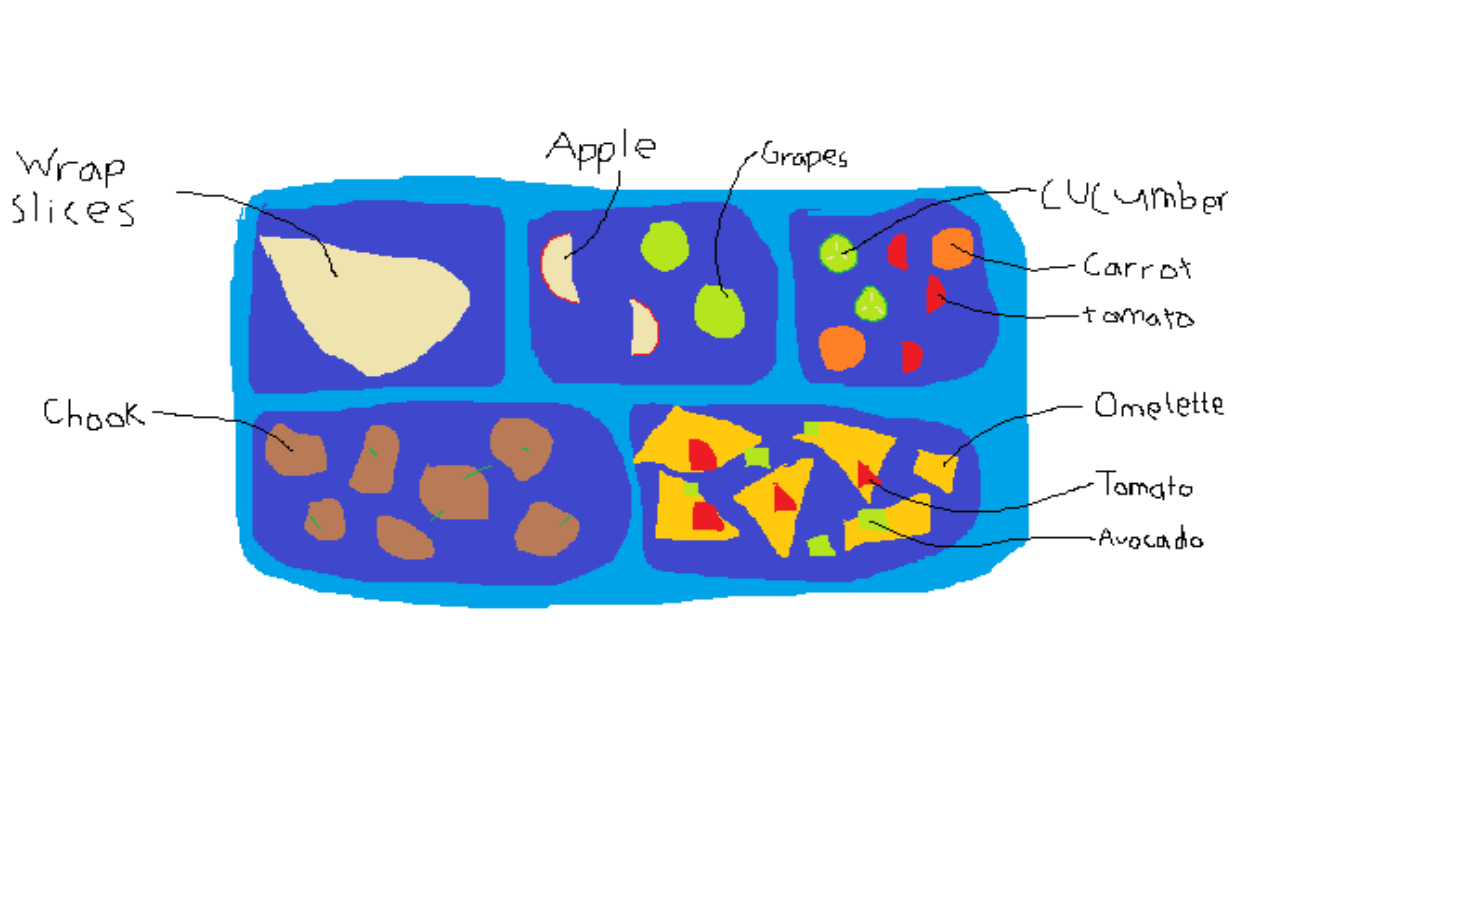 Wrap
slices
Apple
Grapes
Cucumber
Carrot
tomato
Chook
Omelette
Tomato
Avocado